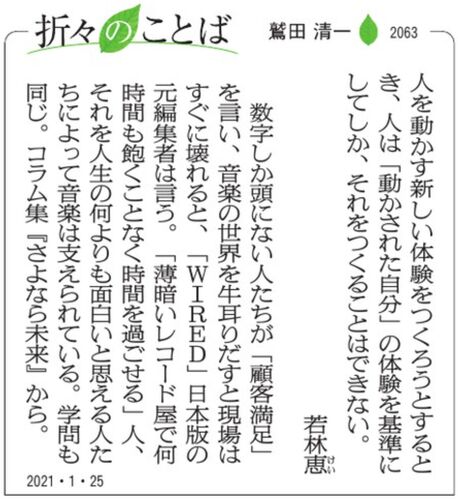 折々のことば
鷲田 清一
2063
人を動かす新しい体験をつくろうとすると
き、人は「動かされた自分」の体験を基準に
してしか、それをつくることはできない。
若林恵
けい
数字しか頭にない人たちが「顧客満足」
を言い、音楽の世界を牛耳りだすと現場は
すぐに壊れると、「WIRED」日本版の
元編集者は言う。「薄暗いレコード屋で何
時間も飽くことなく時間を過ごせる」人、
それを人生の何よりも面白いと思える人た
ちによって音楽は支えられている。学問も
同じ。コラム集『さよなら未来』から。
2021・1・25